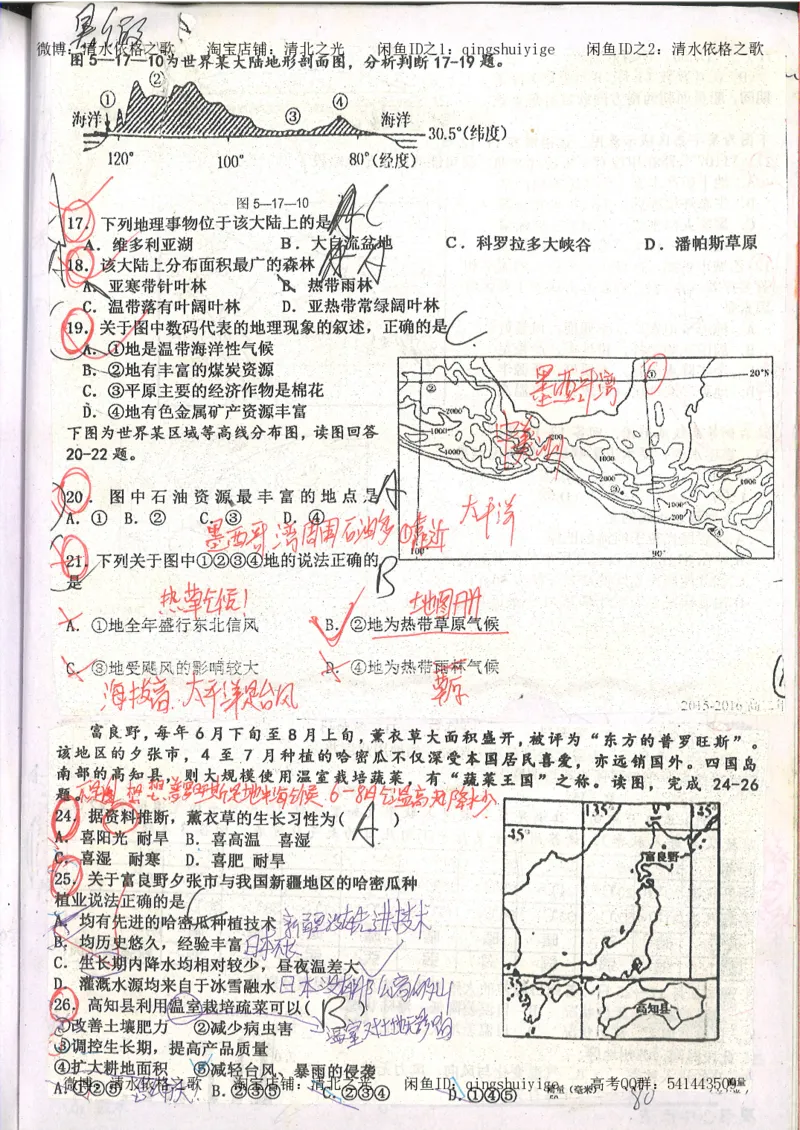 暑假
微博：清水依格之歌 淘宝店铺：清北之光 闲鱼ID之1：qingshuiyige 闲鱼ID之2：清水依格之歌
图5—17—10为世界某大陆地形剖面图，分析判断17-19题。
① ② ③ ④
海洋 海洋 30.5°(纬度)
120° 100° 80°(经度)
图5—17—10
17．下列地理事物位于该大陆上的是 C
A．维多利亚湖 B．大自流盆地 C．科罗拉多大峡谷 D．潘帕斯草原
18．该大陆上分布面积最广的森林 A
A．亚寒带针叶林 B．热带雨林
C．温带落有叶阔叶林 D．亚热带常绿阔叶林
19．关于图中数码代表的地理现象的叙述，正确的是 C
A．①地是温带海洋性气候
B．②地有丰富的煤炭资源
C．③平原主要的经济作物是棉花
D．④地有色金属矿产资源丰富
下图为世界某区域等高线分布图，读图回答
20-22题。
20°S
墨西哥湾
中美洲
太平洋
100° 90°
20．图中石油资源最丰富的地点是 A
A．① B．② C．③ D．④
墨西哥湾周围石油多 ①靠近
21．下列关于图中①②③④地的说法正确的
是 B
热草气候！ 地图册
A．①地全年盛行东北信风 B．②地为热带草原气候
C．③地受飓风的影响较大 D．④地为热带雨林气候
海拔高．太平洋是台风 草原
2015-2016
富良野，每年6月下旬至8月上旬，薰衣草大面积盛开，被评为“东方的普罗旺斯”。
该地区的夕张市，4至7月种植的哈密瓜不仅深受本国居民喜爱，亦远销国外。四国岛
南部的高知县，则大规模使用温室栽培蔬菜，有“蔬菜王国”之称。读图，完成 24-26
题。 普罗旺斯是地中海气候 6-8月气温高为降水少
24．据资料推断，薰衣草的生长习性为( A )
A．喜阳光 耐旱 B．喜高温 喜湿
C．喜湿 耐寒 D．喜肥 耐旱
135° 145°
45°
富良野
35°
高知县
25．关于富良野夕张市与我国新疆地区的哈密瓜种
植业说法正确的是 C
A．均有先进的哈密瓜种植技术 新疆没有先进技术
B．均历史悠久，经验丰富 日本不长
C．生长期内降水均相对较少，昼夜温差大
D．灌溉水源均来自于冰雪融水 日本没有那么高的山
26．高知县利用温室栽培蔬菜可以( B
①改善土壤肥力 ②减少病虫害 温室对土地无影响
③调控生长期，提高产品质量
④扩大耕地面积 ⑤减轻台风、暴雨的侵袭
A．①②⑤ B．②③⑤ C．②③④ D．①④⑤
微博：清水依格之歌 淘宝店铺：清北之光 闲鱼ID：qingshuiyige 高考QQ群：541443509